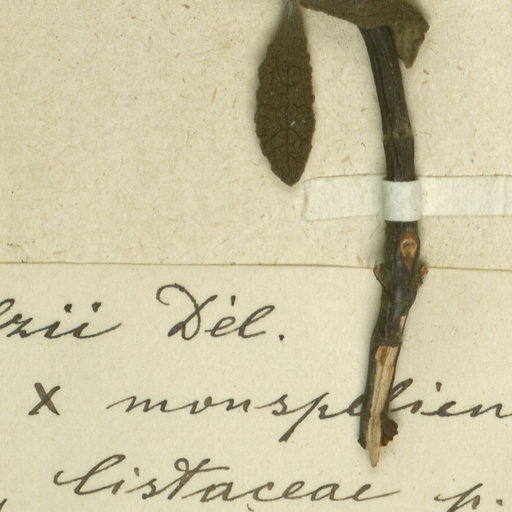 zii Dél.
x monspelien
Cistaceae p.